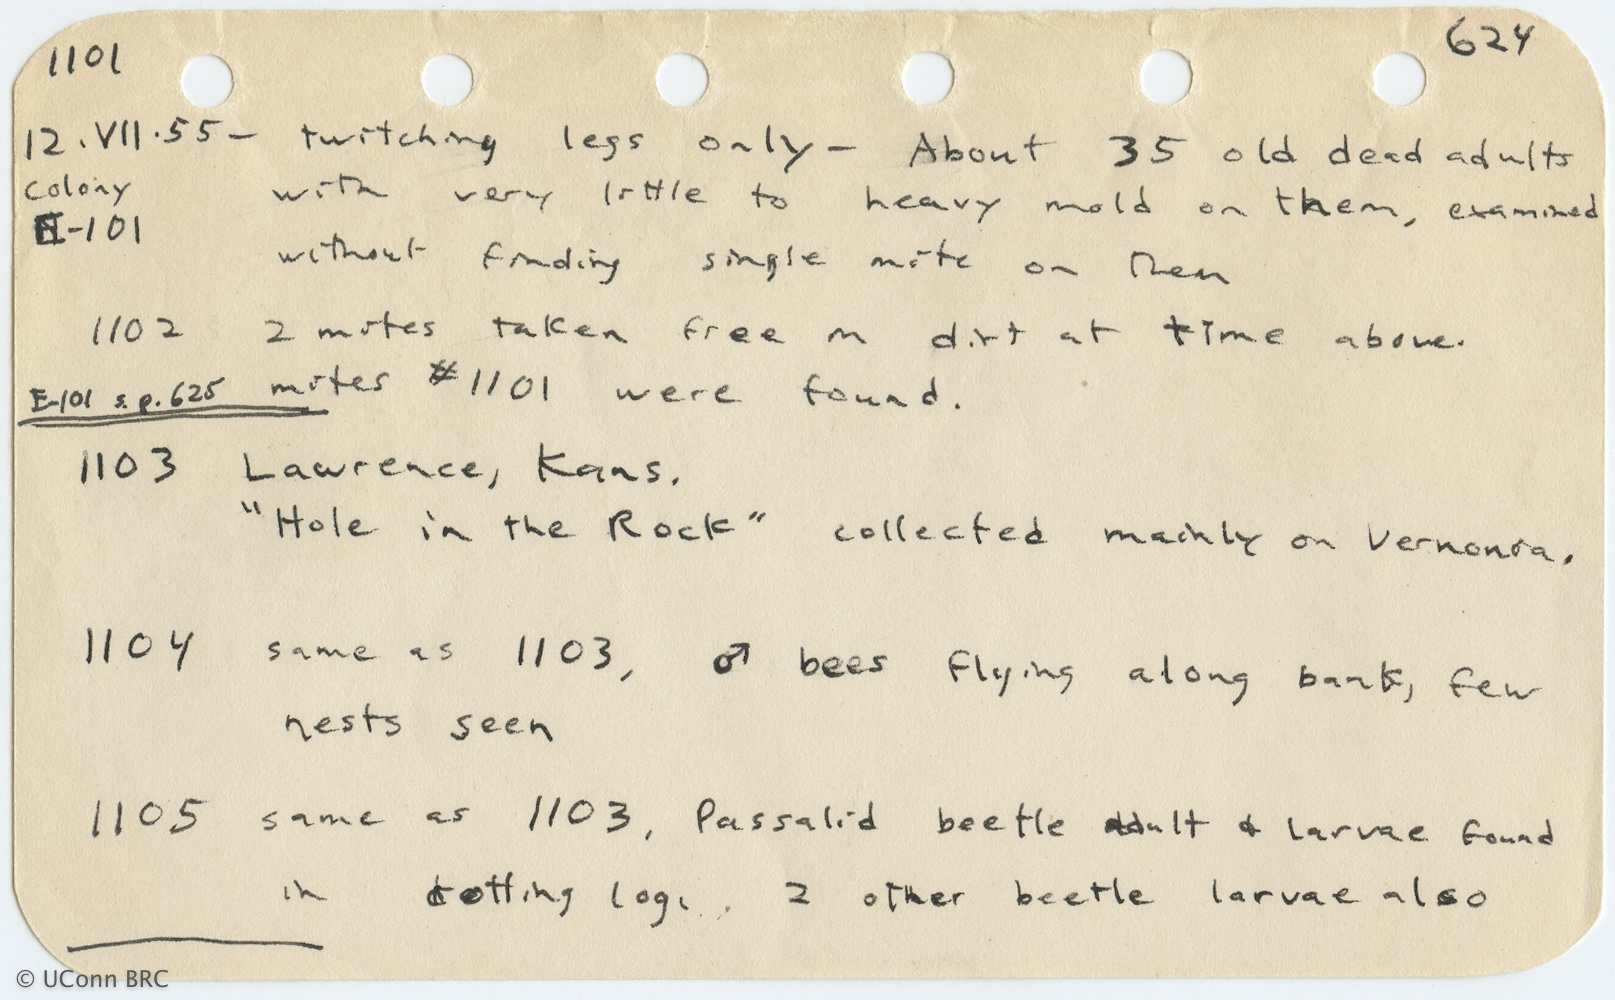 1101 624
12.VII.55 – twitching legs only – About 35 old dead adults
colony with very little to heavy mold on them, examined
E-101 without finding single mite on them
1102 2 mites taken free in dirt at time above.
E-101 s.p. 625 mites #1101 were found.
1103 Lawrence, Kans.
"Hole in the Rock" collected mainly on Vernonia.
1104 same as 1103, ♂ bees flying along bank, few
nests seen
1105 same as 1103, Passalid beetle adult & larvae found
in rotting log. 2 other beetle larvae also
© UConn BRC